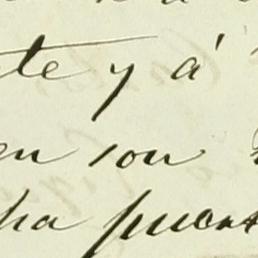 te y á
en son
ha puest